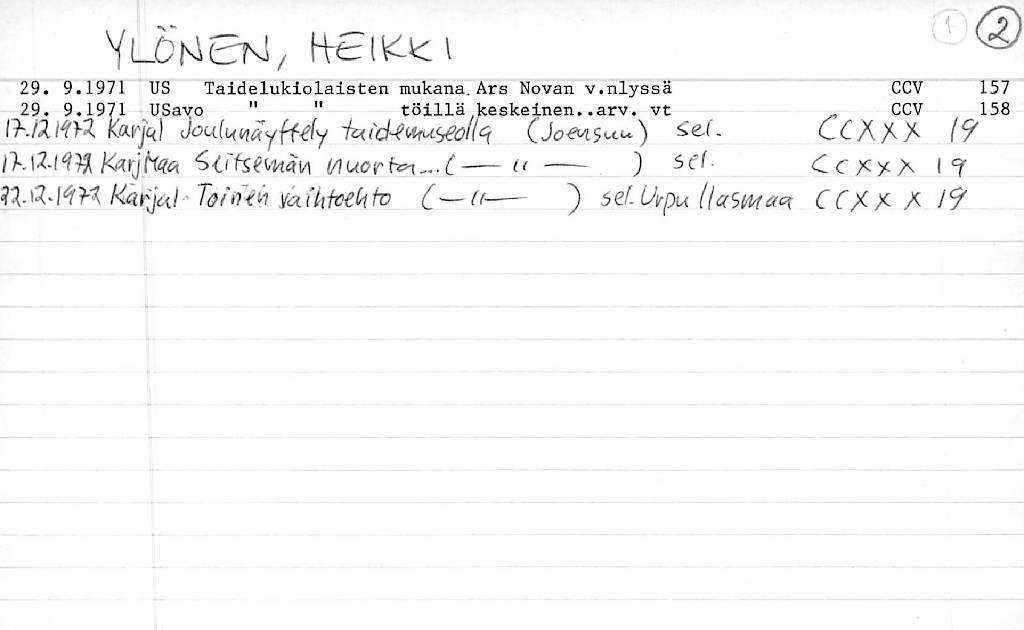 1 2
YLÖNEN, HEIKKI
29. 9.1971 US Taidelukiolaisten mukana. Ars Novan v.nlyssä CCV 157
29. 9.1971 USavo " " töillä keskeinen..arv. vt CCV 158
17.12.1972 Karjal Joulunäyttely taidemuseolla (Joensuu) sel. CCXXX 19
17.12.1972 KarjMaa Seitsemän nuorta... ( — " — ) sel. CCXXX 19
22.12.1972 Karjal. Toinen vaihtoehto ( — " — ) sel. Urpu Ilasmaa CCXXX 19